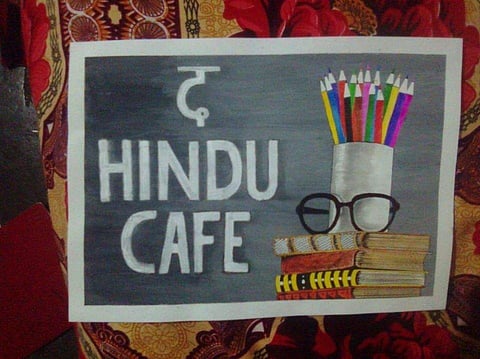 द
HINDU
CAFE